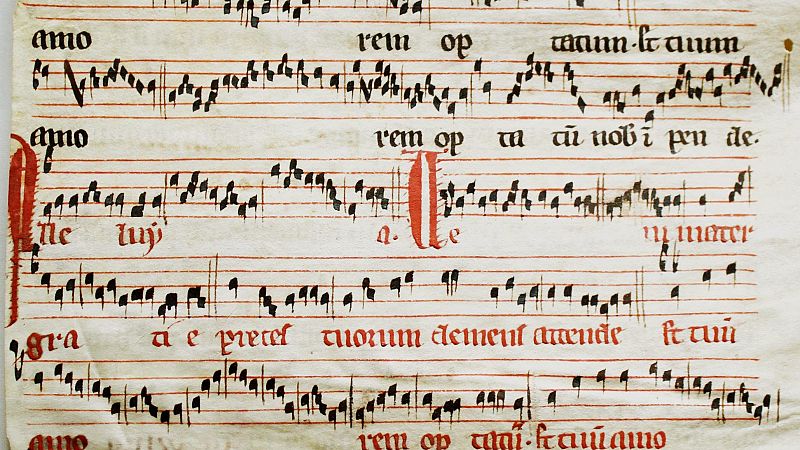 amo rem op tatum · st tuum
amo rem op ta tū nob ī pen de.
A lle luy a. A e m mater
gra ti e preces tuorum clemens attende st tuū
amo rem op tatū · st tuū amo